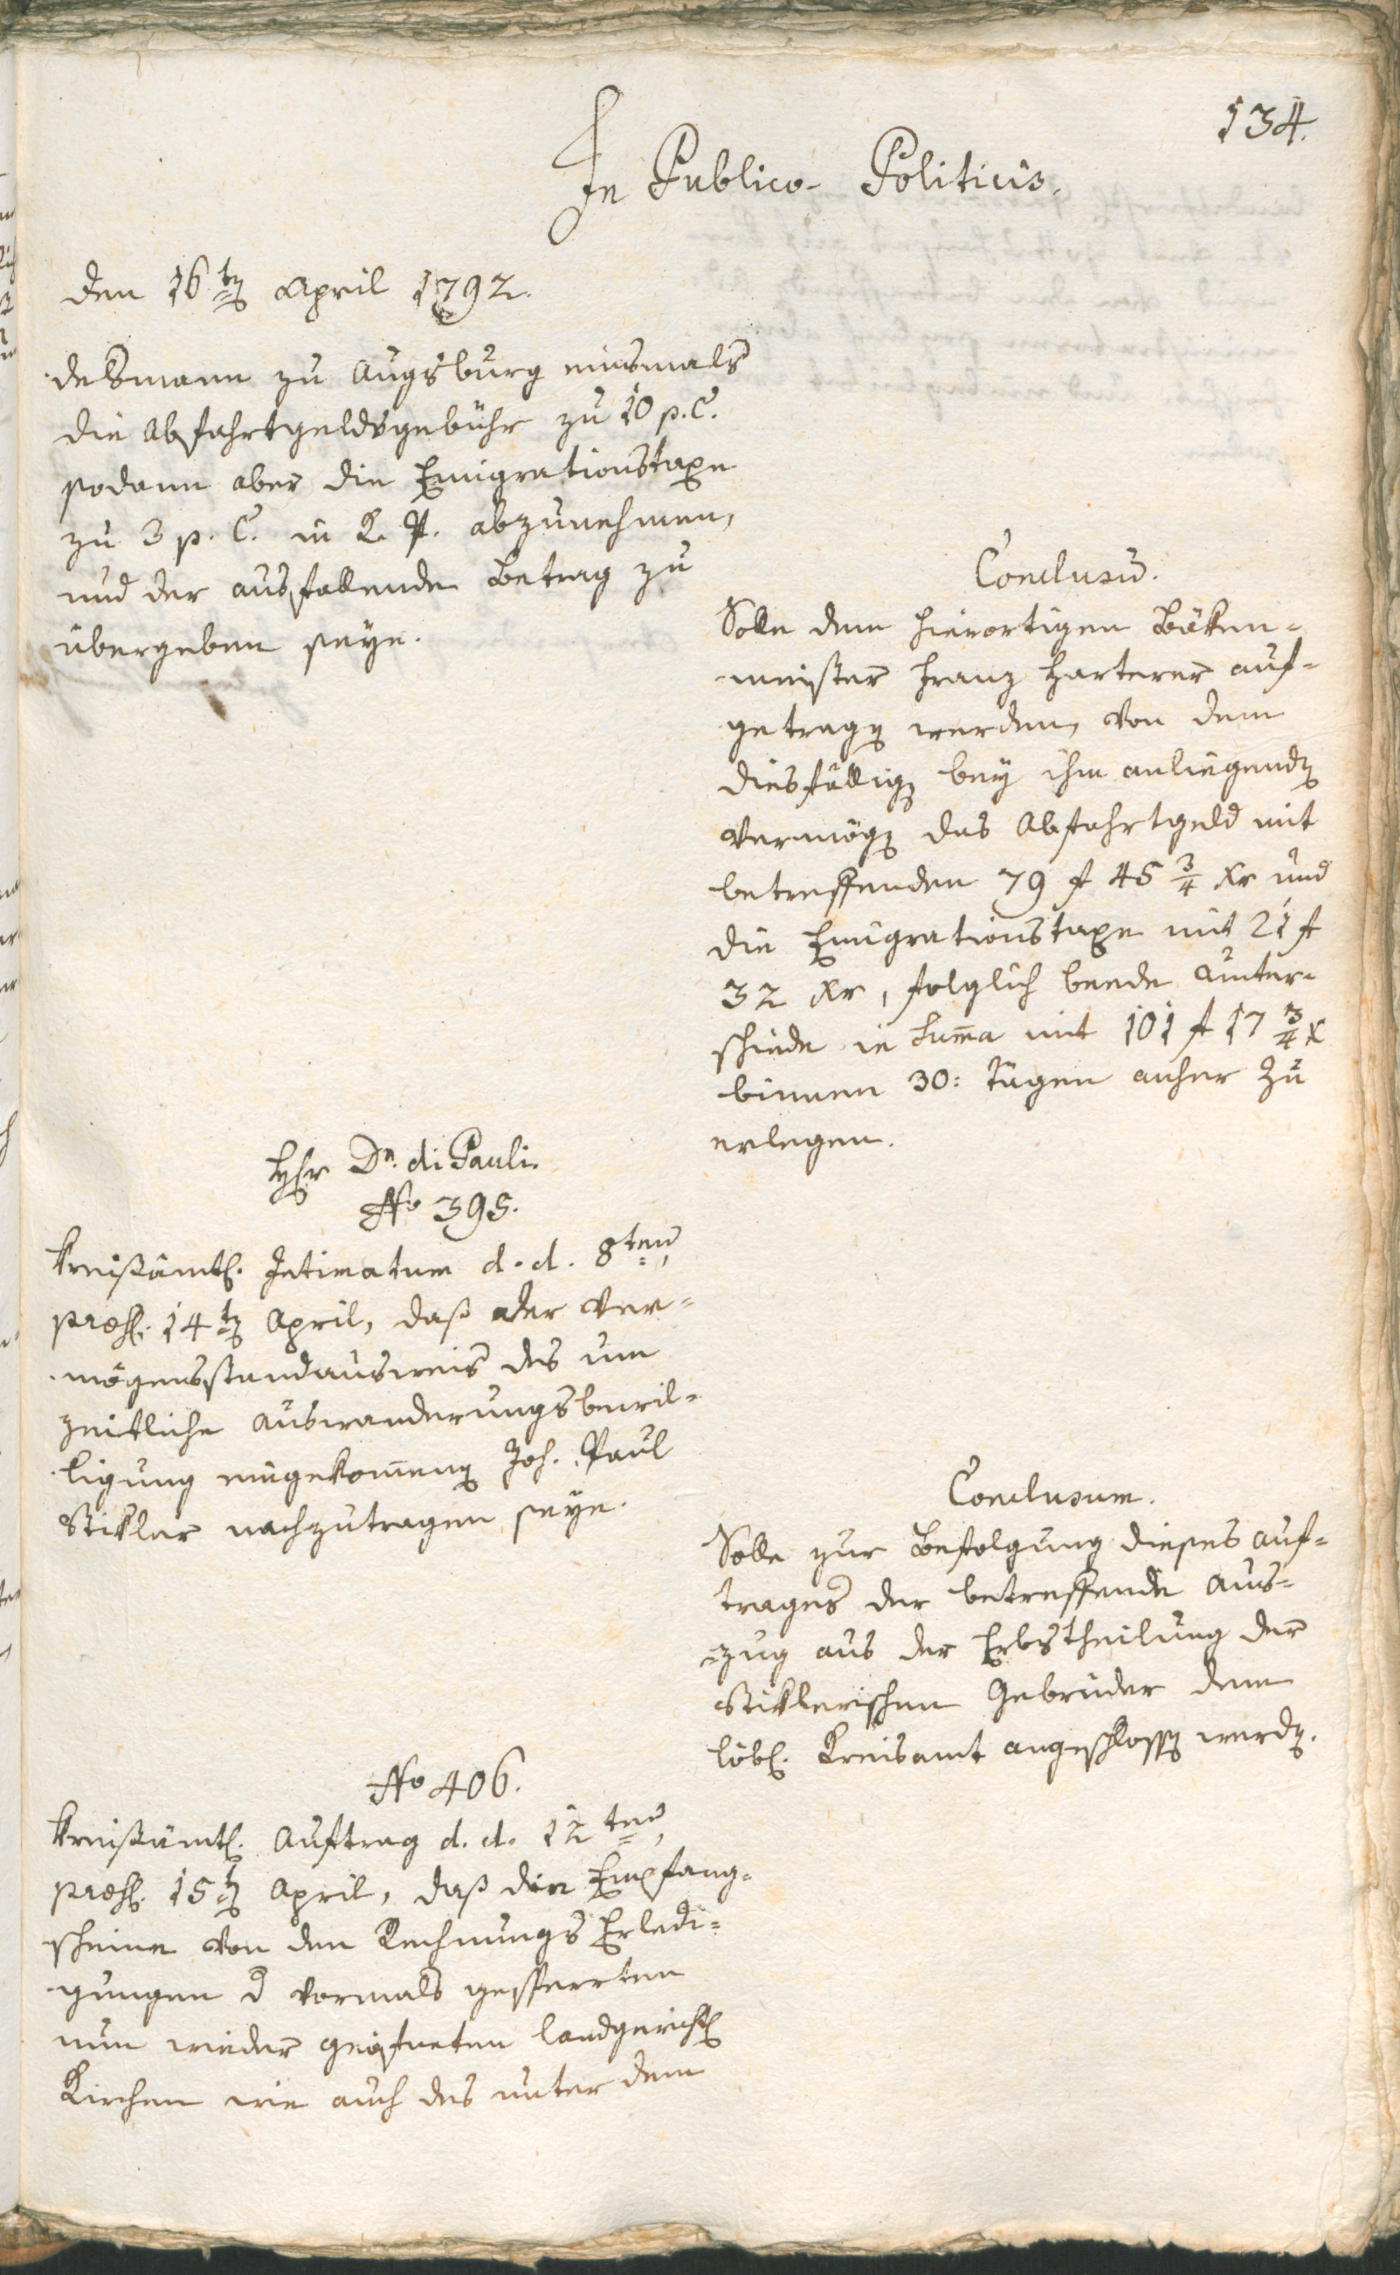 134.
In Publico-Politicis.
den 16ten April 1792.
desmann zu Augsburg einsmals
die Abfahrtgeldsgebühr zu 10 p. C.
sodann aber die Emigrationstaxe
zu 3 p. C. in abzunehmen,
und der ausfallende Betrag zu
übergeben seye.
Conclusũ.
Solle dem hierortigen Bäken-
meister Franz Harterer auf-
getragen werden, von dem
diesfällig bey ihm anliegenden
Vermögen das Abfahrtgeld mit
betreffenden 79 f 45 3/4 xr und
die Emigrationstaxe mit 21 f
32 xr, folglich beede Unter-
schiede in Suma mit 101 f 17 3/4 x
binnen 30: Tägen anher zu
erlegen.
Hr Dr. di Pauli.
No 395.
Kreißämtl. Intimatum d. d. 8ten,
præs. 14ten April, daß der Ver-
mögensstandausweis des um
zeitliche Auswanderungsbewil-
ligung eingekomenen Joh. Paul
Stikler nachzutragen seye.
Conclusum.
Solle zur Befolgung dieses Auf-
trages der betreffende Aus-
zug aus der Erbstheilung der
Stiklerischen Gebrüder dem
löbl. Kreisamt angeschlossen werden.
No 406.
Kreißämtl. Auftrag d. d. 12ten,
præs. 15ten April, daß die Empfang-
scheine von den Rechnungs Erledi-
gungen d vormals gesperrten
nun wieder geöfneten landgerichtl
Kirchen wie auch des unter dem